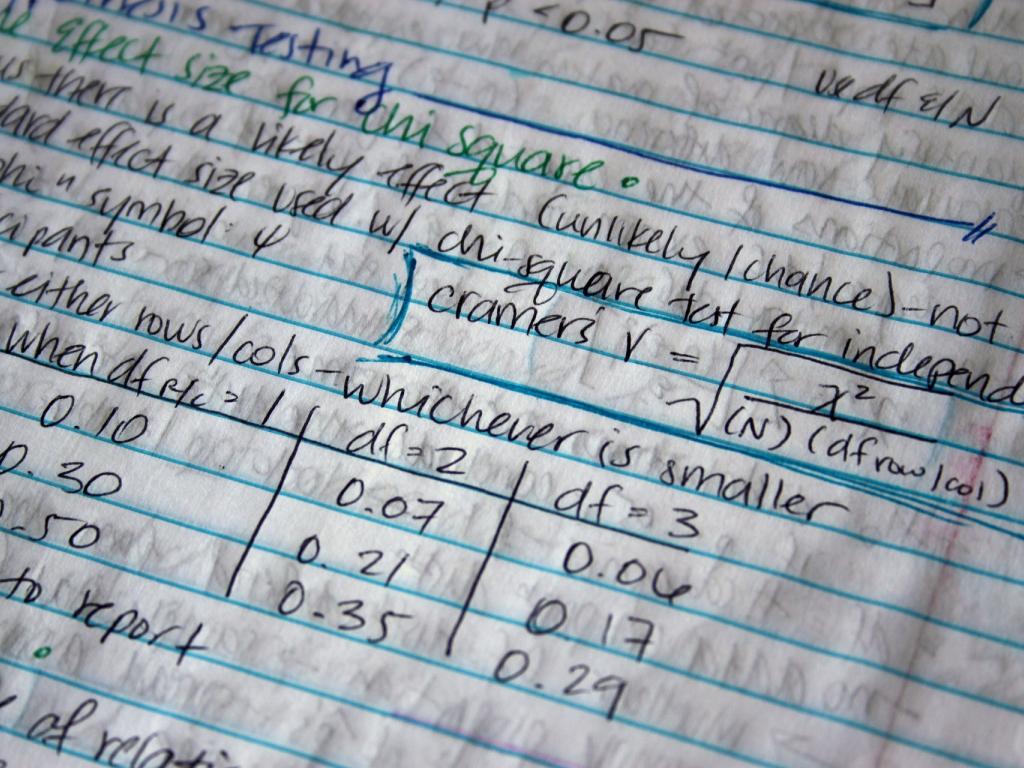 p < 0.05
Testing
use df & N
effect size for chi square.
there is a likely effect (unlikely / chance) - not
effect size used w/ chi-square test for independ
symbol: φ
cramer's V = √ χ² / (N) (df row/col)
either rows/cols - whichever is smaller
when df R/C = 1 df = 2 df = 3
0.10 0.07 0.06
0.30 0.21 0.17
.50 0.35 0.29
to report
of relati